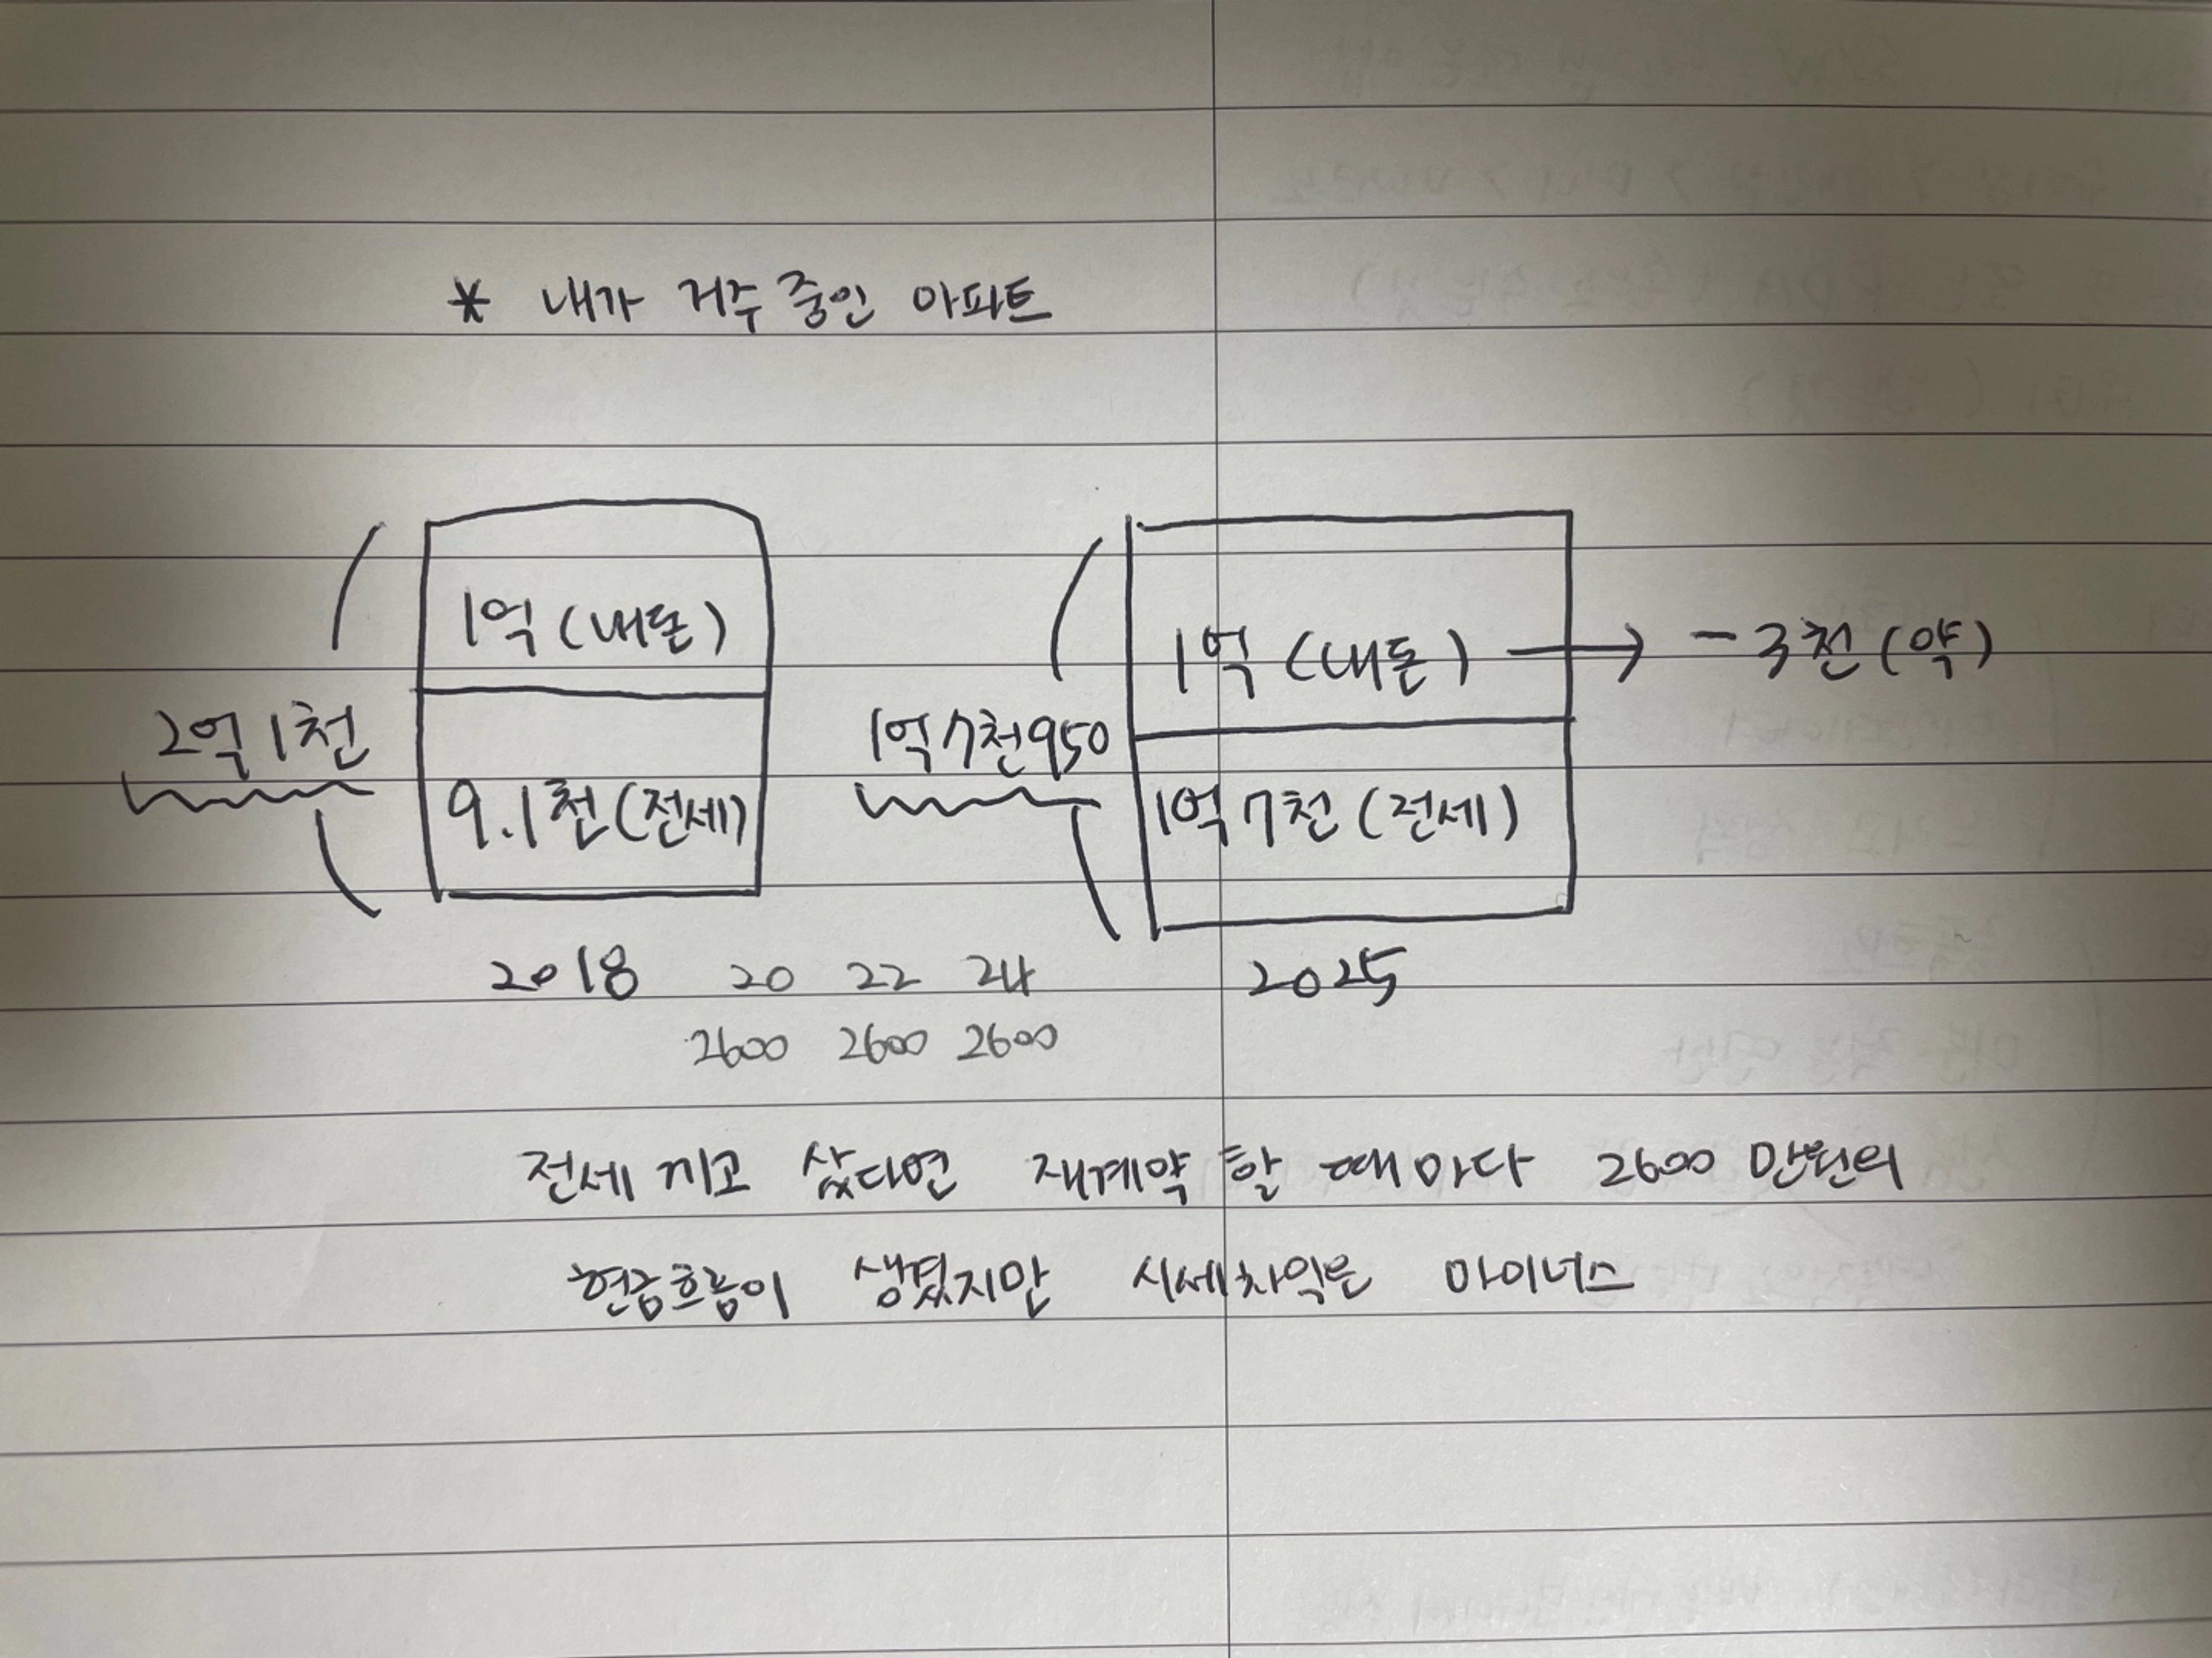 * 내가 거주중인 아파트
1억 (내돈)
2억 1천
9.1천 (전세)
2018
1억 (내돈) → -3천 (약)
1억 7천950
1억 7천 (전세)
2025
20 22 24
2600 2600 2600
전세 끼고 샀다면 재계약 할 때마다 2600 만원의
현금흐름이 생겼지만 시세차익은 마이너스